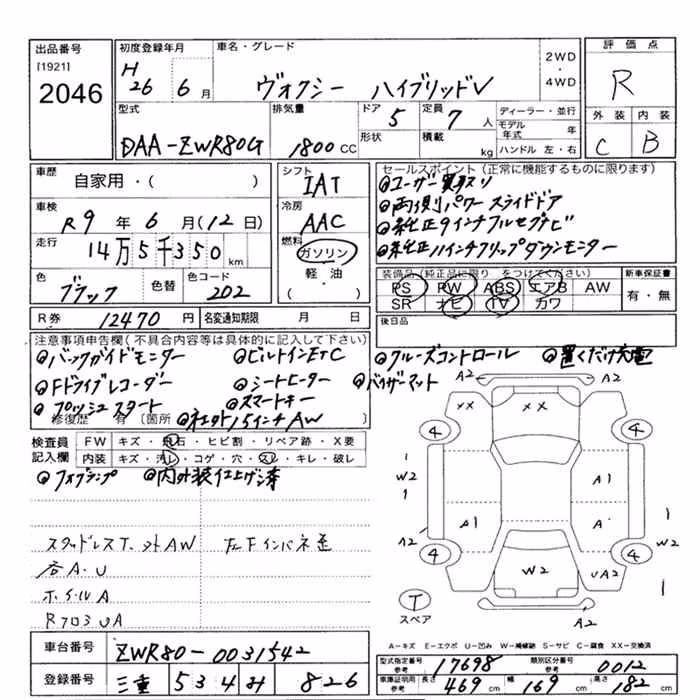 出品番号
[1921]
2046
初度登録年月
H
26 6 月
車名・グレード
ヴォクシー ハイブリッドV
2WD
・
4WD
評価点
R
外装 内装
C B
型式
DAA-ZWR80G
排気量
1800 CC
ドア 5
形状
定員 7 人
積載 kg
ディーラー・並行
モデル年式 年
ハンドル 左・右
車歴 自家用・( )
車検 R9 年 6 月 (12 日)
走行 14万5千350 km
色 ブラック
色替
色コード 202
シフト
IAT
冷房
AAC
燃料
ガソリン
軽油
( )
セールスポイント(正常に機能するものに限ります)
◎ユーザー買取り
◎両側パワースライドドア
◎純正9インチフルセグナビ
◎純正11インチフリップダウンモニター
装備品(純正品に限り をつけてください)
PS PW ABS エアB AW
SR ナビ TV カワ
新車保証書
有・無
後日品
R券 12470 円
名変通知期限 月 日
注意事項申告欄(不具合内容等は具体的に記入して下さい)
◎バックガイドモニター ◎ビルトインETC ◎クルーズコントロール ◎置くだけ充電
◎Fドライブレコーダー ◎シートヒーター ◎バイザーマット
◎プッシュスタート ◎スマートキー
修復歴 有 [箇所 ◎社外15インチAW
検査員記入欄
FW キズ・飛石・ヒビ割・リペア跡・X要
内装 キズ・汚レ・コゲ・穴・スレ・キレ・破レ
◎フォグランプ ◎内外装仕上げ済
スタッドレスT.社外AW 左Fインパネ歪
各A・U
ホイルA
Rフロア UA
A2 A2
XX XX
4 4
W2 W2
A1 A1 A
A2 W2
4 4
W2 UA2
T
スペア
A2
A-キズ E-エクボ U-凹み W-補修跡 S-サビ C-腐食 XX-交換済
車台番号 ZWR80-0031542
登録番号 三重 534 ｻ 826
型式指定番号 参考 17698
類別区分番号 参考 0012
車庫証明用 参考 長さ 469 cm 幅 169 cm 高さ 182 cm